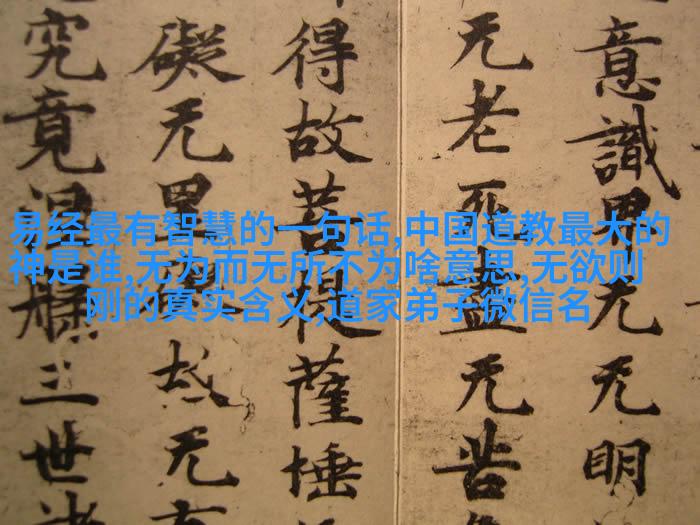 易经最有智慧的一句话,中国道教最大的
神是谁,无为而无所不为啥意思,无欲则
刚的真实含义,道家弟子微信名
意識界无无明
无老死盡无苦
得故菩提薩埵
礙无罣礙故无
究竟涅槃三世諸